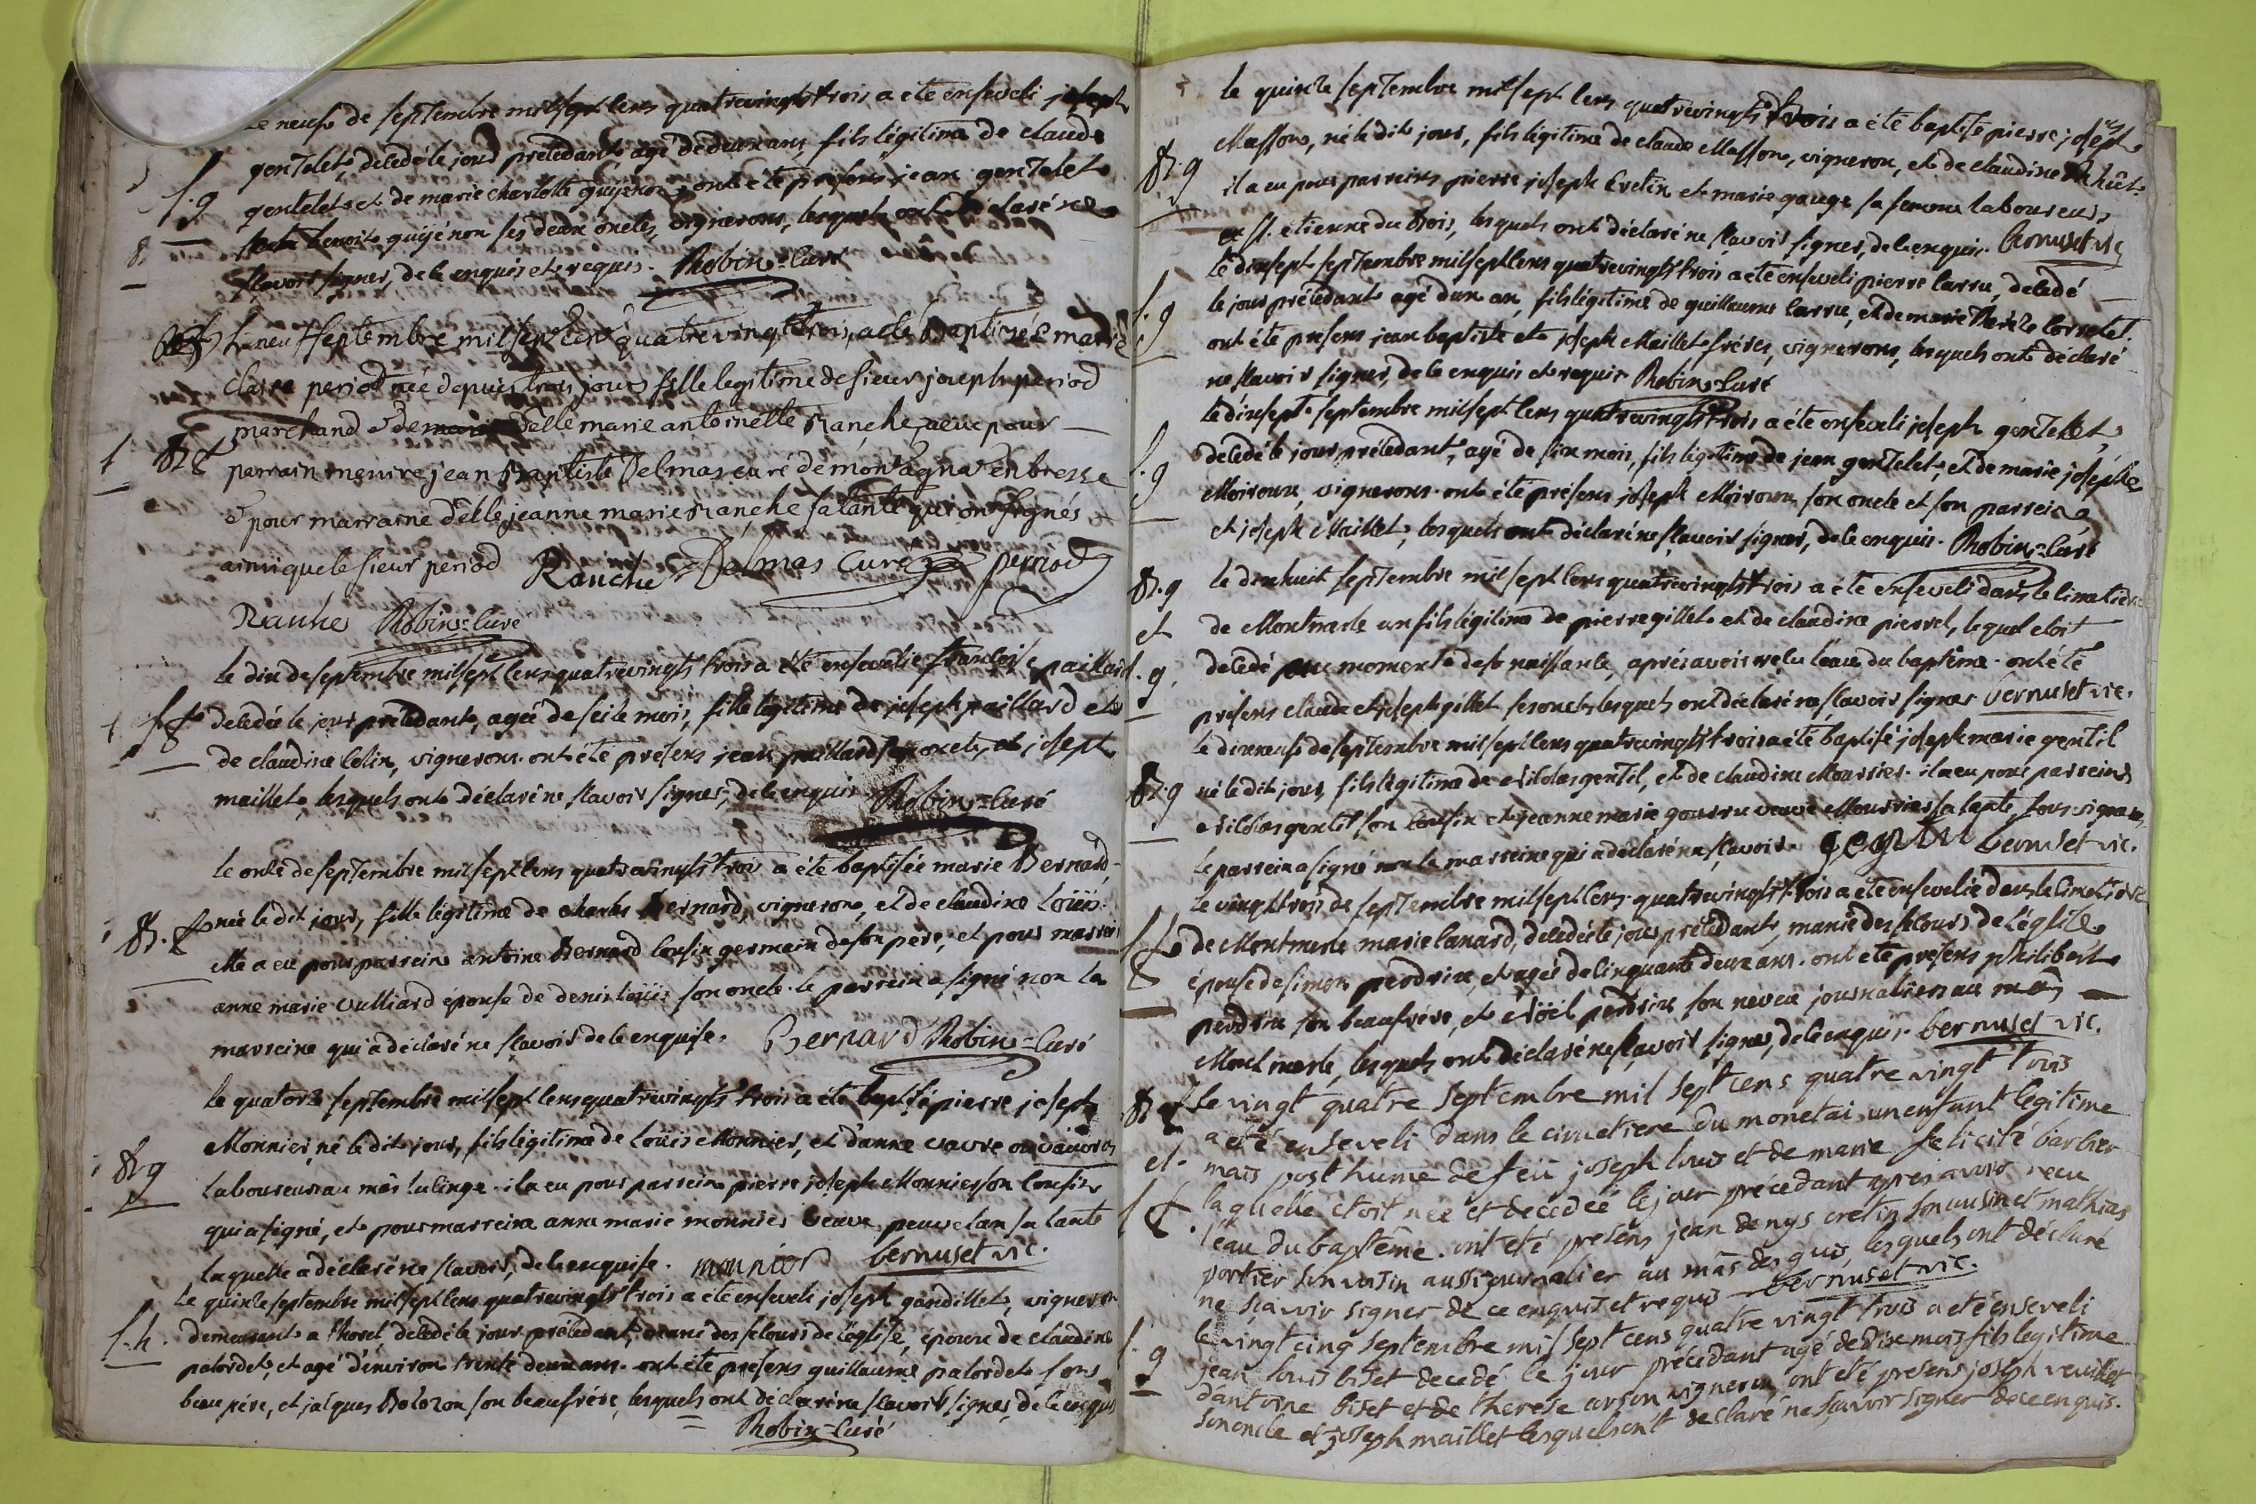 le neuf de septembre mil sept cens quatrevingts trois a été enseveli joseph
gentelet, decedé le jour précedant, agé de deux ans, fils légitime de claude
S. g gentelet et de marie charlotte guyenon, ont été présens jean gentelet
benoit guyénon ses deux oncles, vignerons, lesquels ont déclaré ne
sçavoir signer, de ce enquis et requis. Robin=curé
Le neuf septembre mil sept cent quatre vingt trois, a été Baptizéé marie
Claire period née depuis trois jours fille legitime de sieur joseph period
marchand & de delle marie antoinette Ranche, a eue pour
B f parrain messire jean Baptiste Delmas curé de montagna en bresse
& pour marraine delle jeanne marie Ranche sa tante qui ont signés
ainsi que le sieur period Ranche Delmas Curé period
Ranche Robin=curé
le dix de septembre mil sept cens quatrevingts trois a été ensevelie françoise paillard
S f decedée le jour précedant, agée de seize mois, fille légitime de joseph paillard et
de claudine Colin, vignerons. ont été présens jean paillard son oncle, et joseph
maillet, lesquels ont déclaré ne sçavoir signer, de ce enquis Robin=curé
le onze de septembre mil sept cens quatrevingts trois a été baptisée marie Bernard,
B. f née le dit jour, fille légitime de charles Bernard, vigneron, et de claudine Loüis.
elle a eu pour parrein antoine Bernard cousin germain de son pere, et pour marreine
anne marie vulliard épouse de denis Loüis son oncle. le parrein a signé, non la
marreine qui a déclaré ne sçavoir de ce enquise. Bernard Robin=curé
le quatorze septembre mil sept cens quatrevingts trois a été baptisé pierre joseph
Monnier, né le dit jour, fils légitime de Loüis Monnier, et d'anne vavre ou
B g laboureurs au mas lulinge. il a eu pour parrein pierre joseph Monnier son cousin
qui a signé, et pour marreine anne marie monnier veuve sa tante
laquelle a déclaré ne sçavoir, de ce enquise. monnier bernuset vic.
Le quinze septembre mil sept cens quatrevingts trois a été enseveli joseph gandillet, vigneron
S. h. demeurant a thorel, decedé le jour précedant, muni des secours de l'église, époux de claudine
palordet, et agé d'environ trente deux ans. ont été présens guillaume palordet son
beau pére, et jacques Bolozon son beaufrére, lesquels ont déclaré ne sçavoir signer, de ce enquis
Robin=curé
le quinze septembre mil sept cens quatrevingts trois a été baptisé pierre joseph
Masson, né le dit jour, fils légitime de claude Masson, vigneron, et de claudine
B. g il a eu pour parreins pierre joseph Cretin et marie gauge sa femme laboureurs
St. etienne du Bois, lesquels ont déclaré ne sçavoir signer, de ce enquis. bernuset vic
le dix sept septembre mil sept cens quatrevingts trois a été enseveli pierre carru, decedé
S. g le jour précedant agé d'un an, fils légitime de guillaume carru, et de marie Théréze Corretet.
ont été présens jean baptiste et joseph Maillet fréres, vignerons, lesquels ont déclaré
ne sçavoir signer, de ce enquis et requis Robin=curé
le dix sept septembre mil sept cens quatrevingts trois a été enseveli joseph gentelet,
S. g decedé le jour précedant, agé de six mois, fils légitime de jean gentelet, et de marie josephe
Moiroux, vignerons. ont été présens joseph Moiroux son oncle et son parrein
et joseph Maillet, lesquels ont déclaré ne sçavoir signer, de ce enquis. Robin=curé
B. g le dix huit septembre mil sept cens quatrevingts trois a été enseveli dans le cimetiére
et de Montmerle un fils légitime de pierre gillet et de claudine pierrel, lequel etoit
S. g. decedé au moment de sa naissance, aprés avoir reçu l'eau du baptême. ont été
présens claude et joseph gillet ses oncles, lesquels ont déclaré ne sçavoir signer bernuset vic.
le dix neuf de septembre mil sept cens quatrevingts trois a été baptisé joseph marie gentil
B. g né le dit jour, fils légitime de Nicolas gentil, et de claudine Mourrier. il a eu pour parreins
Nicolas gentil son cousin et jeanne marie gourru veuve Mourrier sa tante, tous vignerons,
le parrein a signé non la marreine qui a déclaré ne sçavoir. bernuset vic.
Le vingt trois de septembre mil sept cens quatrevingts trois a été ensevelie dans le cimetiére
S f de Montmerle marie Canard, decedée le jour précedant, munie des secours de l'église,
épouse de simon perdrix, et agée de cinquante deux ans. ont été présens philibert
perdrix son beaufrére, et Noël perdrix son neveu journaliers au mâs
Montmerle, lesquels ont déclaré ne sçavoir signer, de ce enquis. bernuset vic.
B f Le vingt quatre septembre mil sept cens quatre vingt trois
a été enseveli dans le cimetiere du monetai un enfant legitime
et. mais posthume de feu joseph louis et de marie felicité barbier
S f. laquelle etoit née et decedée le jour précedant apres avoir recu
l'eau du baptême. ont eté présens jean denys cretin son cousin et mathias
portier son voisin aussi journalier au mâs des guis, lesquels ont déclaré
ne sçavoir signer de ce enquis et requis bernuset vic.
S. g le vingt cinq septembre mil sept cens quatre vingt trois a eté enseveli
jean louis biset decedé le jour précedant agé de dix mois fils legitime
d'antoine biset et de therese arson vignerons, ont eté présens joseph veuillet
son oncle et joseph maillet lesquels ont declaré ne sçavoir signer de ce enquis.